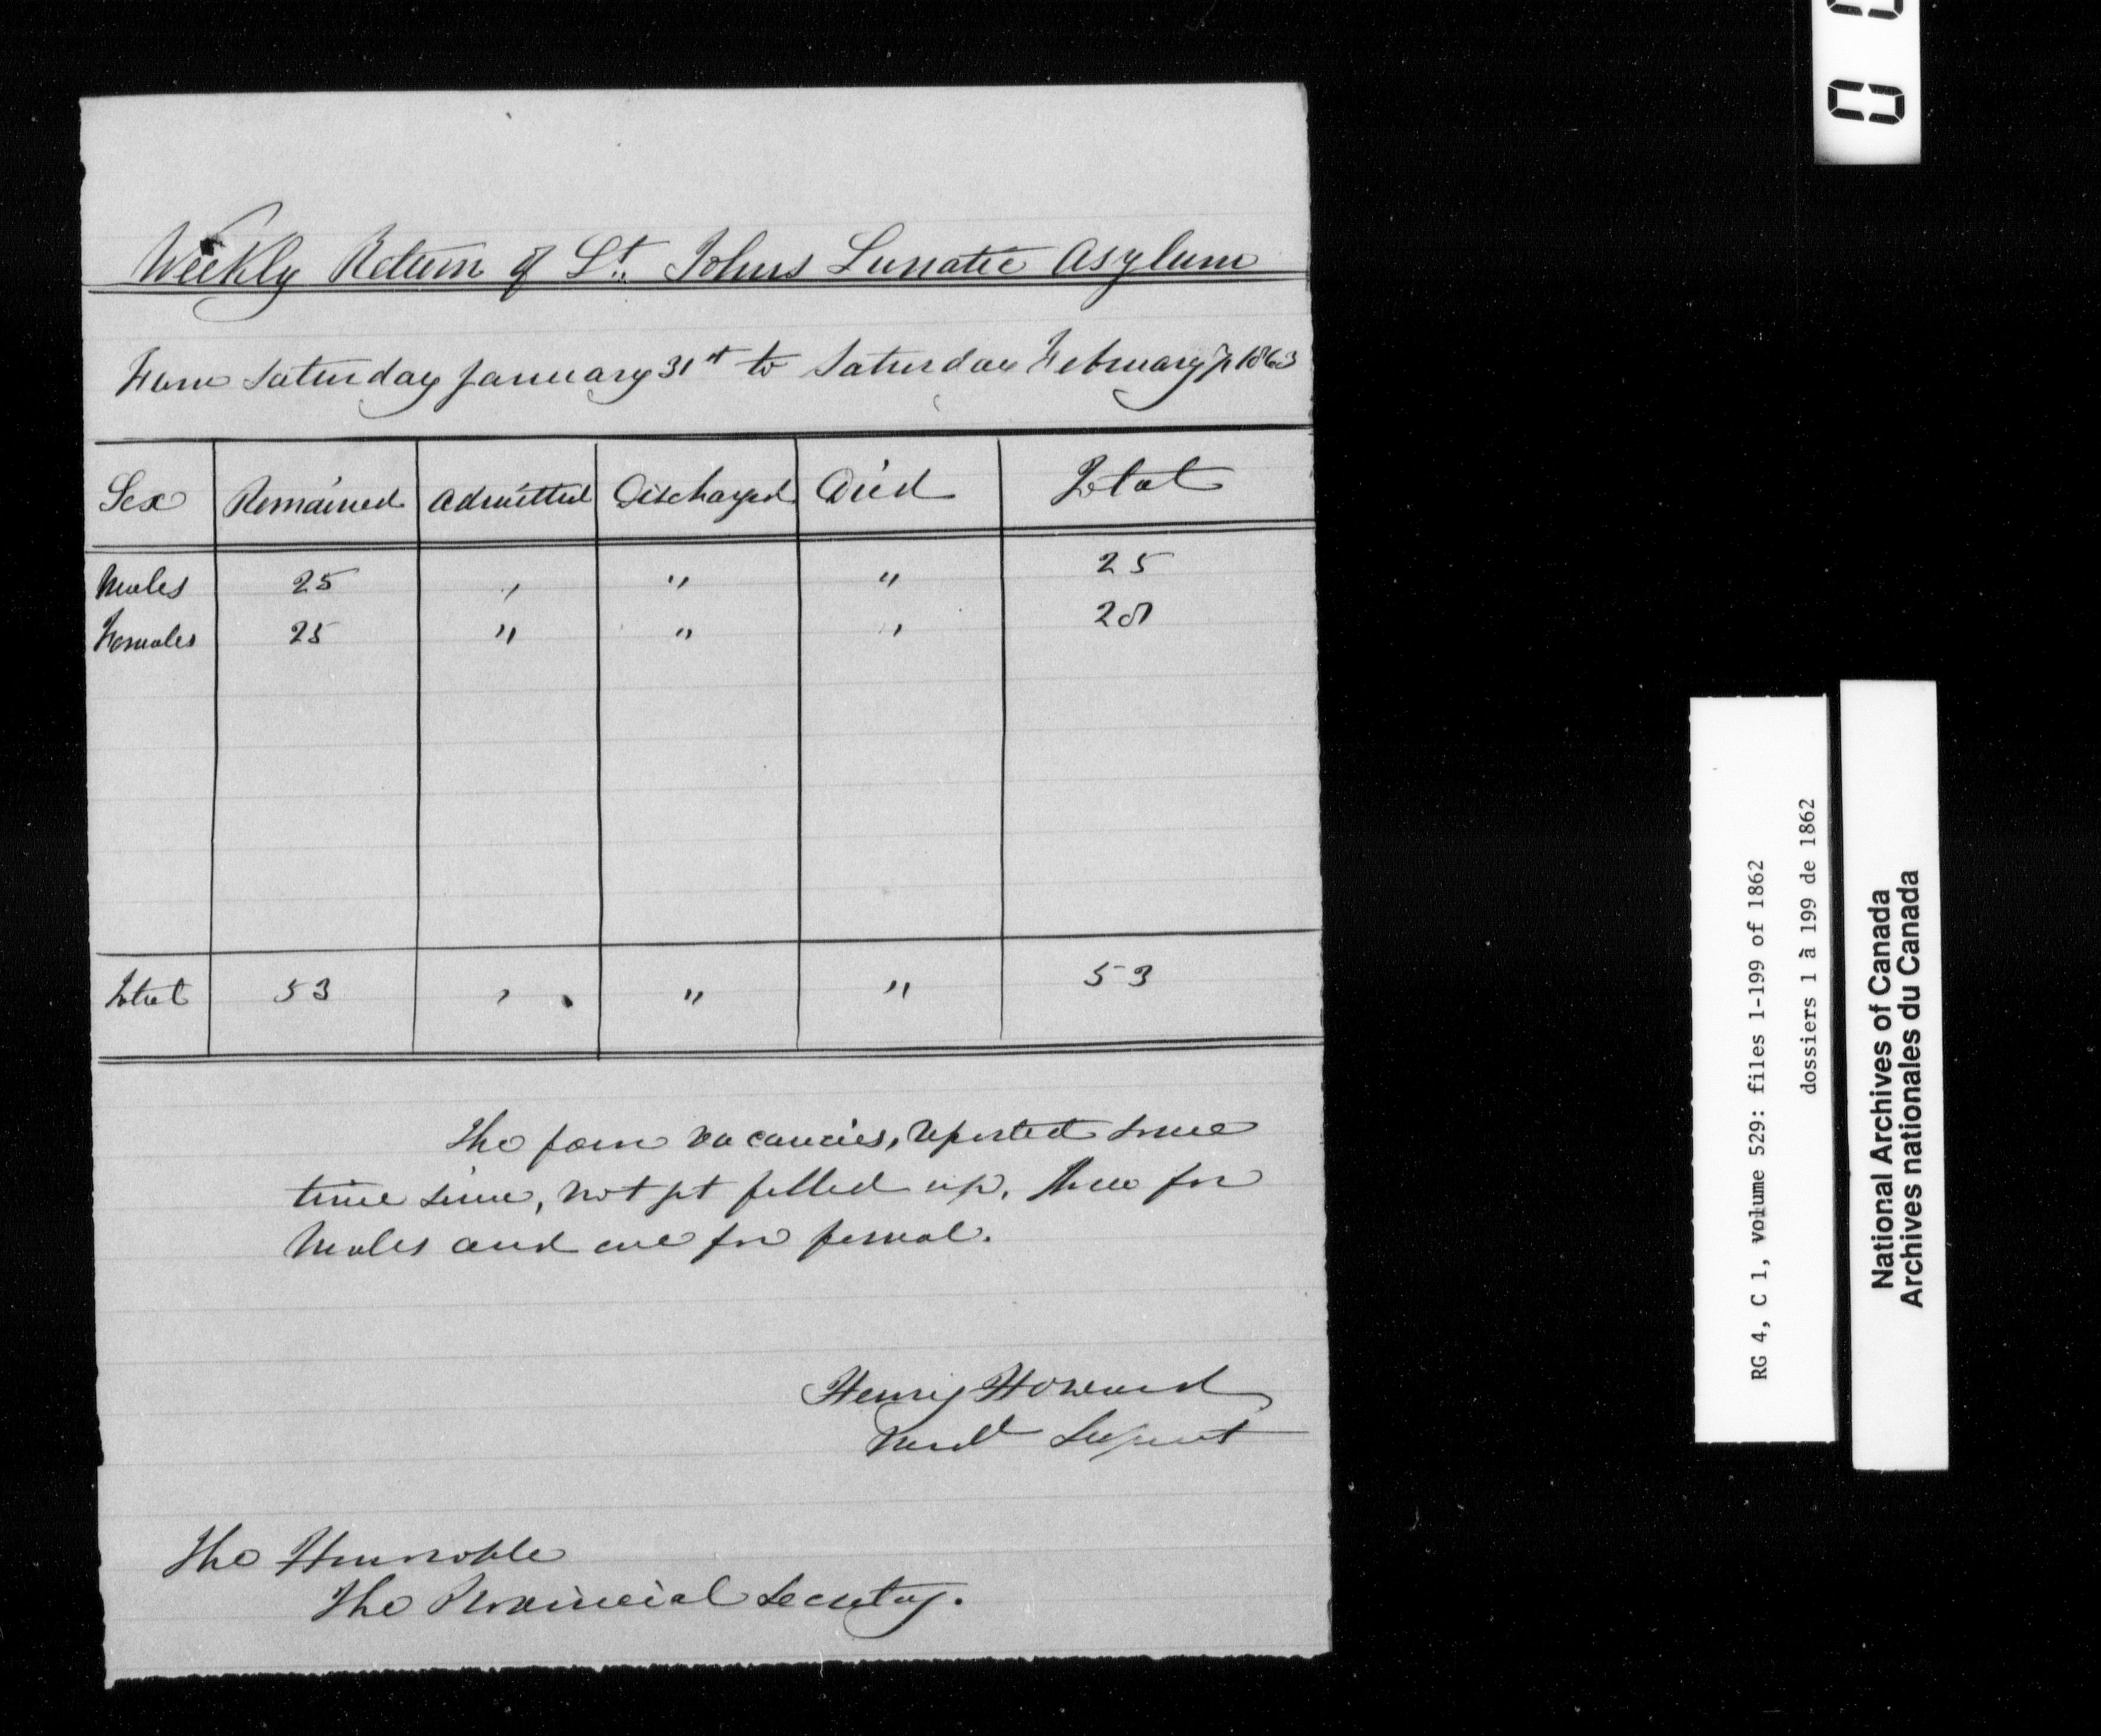 Weekly Return of St. Johns Lunatic Asylum
From Saturday January 31st to Saturday February 7 1863
Sex Remained Admitted Discharged Died Total
Males 25 , " " 25
Females 25 " " " 28
Total 53 , " " 53
The four vacancies, reported some
time since, not yet filled up, three for
Males and one for femal.
Henry Howard
Medl Supent
The Honorable
The Provincial Secretay.
RG 4, C 1, volume 529: files 1-199 of 1862
dossiers 1 à 199 de 1862
National Archives of Canada
Archives nationales du Canada